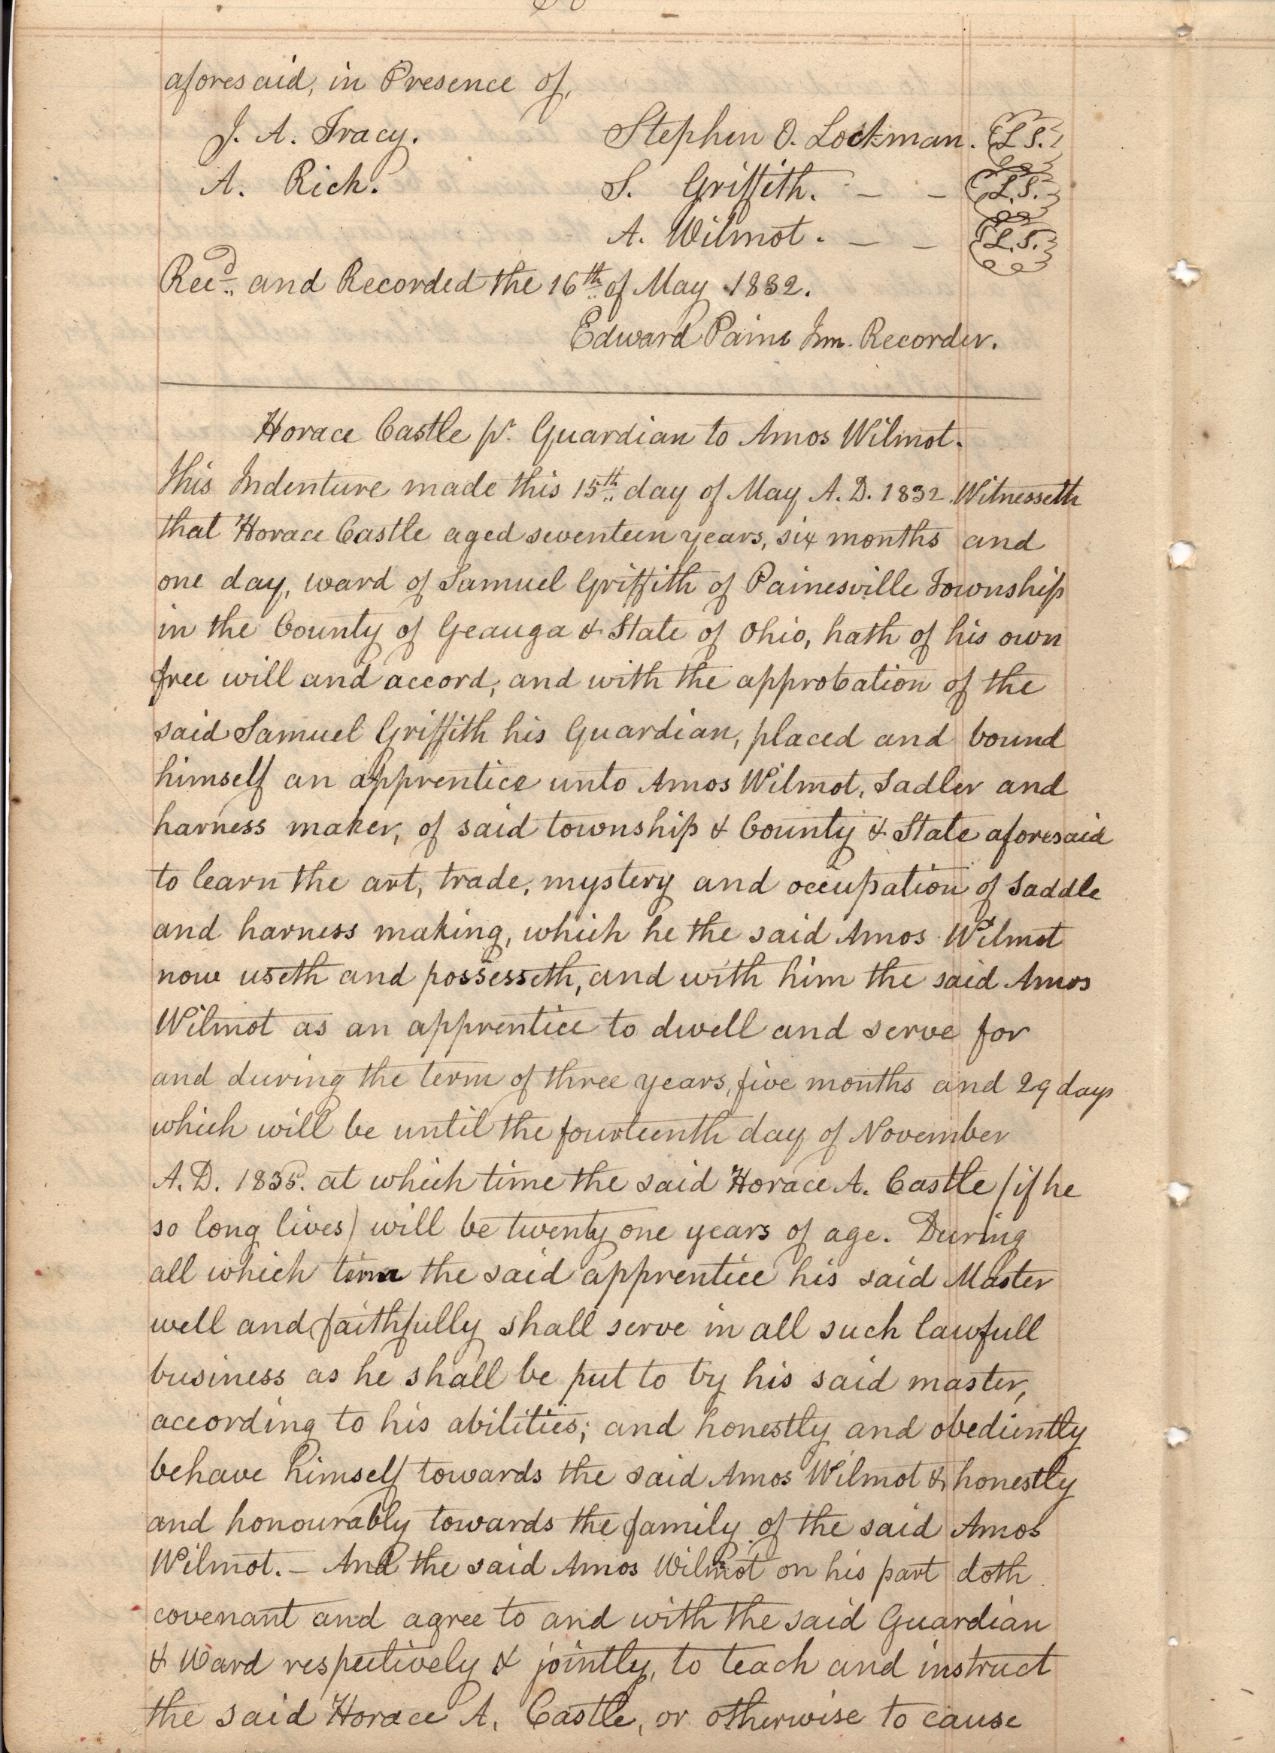 aforesaid, in Presence of,
J. A. Tracy. Stephen O. Lockman. L.S.
A. Rich. S. Griffith. — — L.S.
A. Wilmot. — — L.S.
Recd. and Recorded the 16th of May 1832.
Edward Paine Jun. Recorder.
Horace Castle pr. Guardian to Amos Wilmot.
This Indenture made this 15th day of May A.D. 1832 Witnesseth
that Horace Castle aged seventeen years, six months and
one day, ward of Samuel Griffith of Painesville Township
in the County of Geauga & State of Ohio, hath of his own
free will and accord, and with the approbation of the
said Samuel Griffith his Guardian, placed and bound
himself an apprentice unto Amos Wilmot, Sadler and
harness maker, of said township & County & State aforesaid
to learn the art, trade, mystery and occupation of Saddle
and harness making, which he the said Amos Wilmot
now useth and possesseth, and with him the said Amos
Wilmot as an apprentice to dwell and serve for
and during the term of three years, five months and 29 days
which will be until the fourteenth day of November
A.D. 1835. at which time the said Horace A. Castle (if he
so long lives) will be twenty one years of age. During
all which term the said apprentice his said Master
well and faithfully shall serve in all such lawfull
business as he shall be put to by his said master,
according to his abilities; and honestly and obediently
behave himself towards the said Amos Wilmot & honestly
and honourably towards the family of the said Amos
Wilmot. — And the said Amos Wilmot on his part doth
covenant and agree to and with the said Guardian
& Ward respectively & jointly, to teach and instruct
the said Horace A. Castle, or otherwise to cause